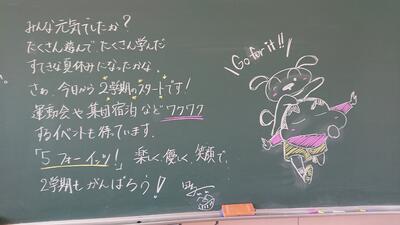 みんな元気でしたか?
たくさん遊んで たくさん学んだ
すてきな夏休みになったかな。
さぁ、今日から2学期のスタートです!
運動会や集団宿泊などワクワク
するイベントも待っています。
「5フォーイッツ!」楽しく、優しく、笑顔で、
2学期もがんばろう!
Go for it!!